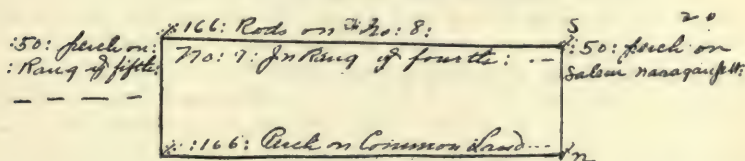 :166: Rods on ye No: 8:
S
20
:50: perch on:
: Rang ye fifth:
No: 7: Jn Rang ye fourth: --
:50: perch on
Salem naragansett:
:166: Perch on Common Land---
n